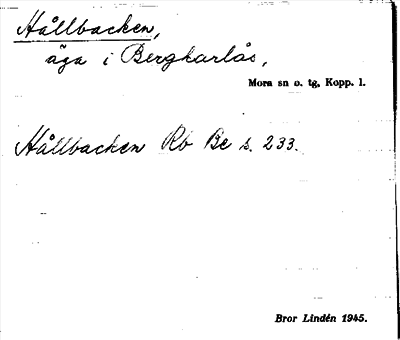 Hållbacken,
äga i Bergkarlås,
Mora sn o. tg, Kopp. l.
Hållbacken Rb Be s. 233.
Bror Lindén 1945.